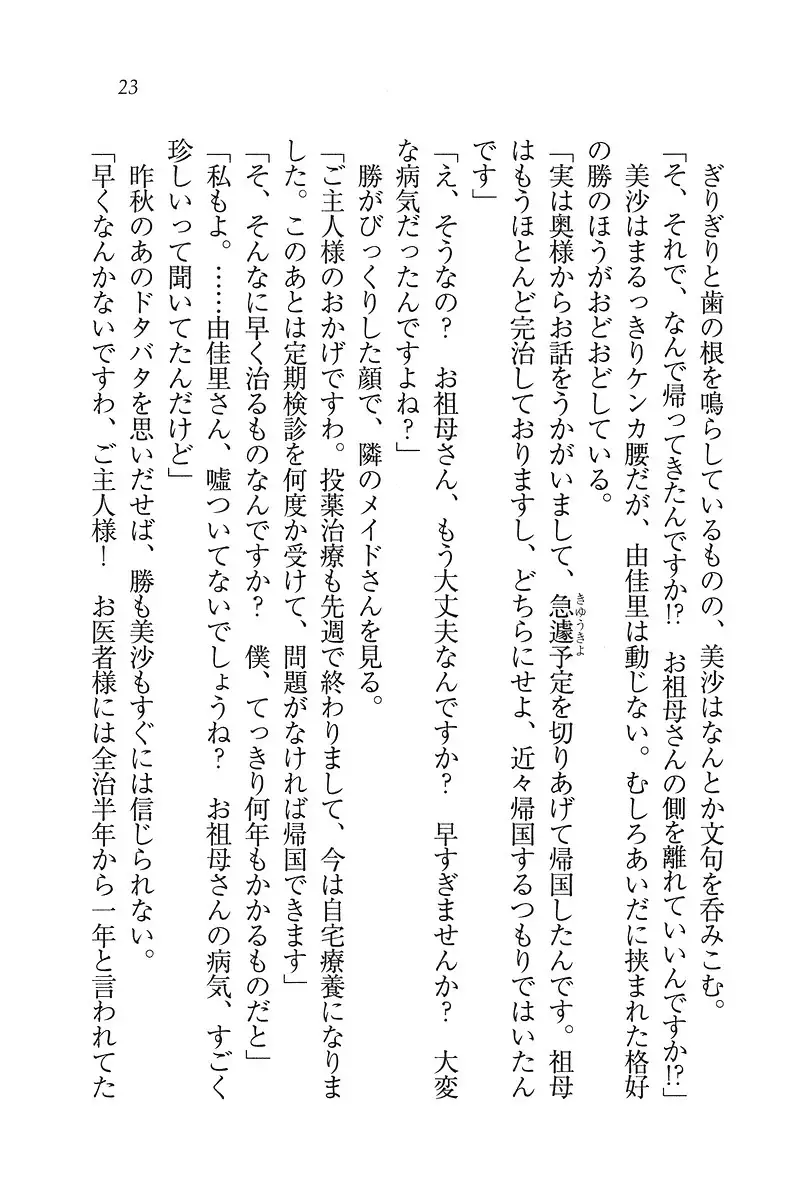 23
ぎりぎりと歯の根を鳴らしているものの、美沙はなんとか文句を呑みこむ。
「そ、それで、なんで帰ってきたんですか!?　お祖母さんの側を離れていいんですか!?」
美沙はまるっきりケンカ腰だが、由佳里は動じない。むしろあいだに挟まれた格好
の勝のほうがおどおどしている。
「実は奥様からお話をうかがいまして、急遽予定を切りあげて帰国したんです。祖母
きゅうきよ
はもうほとんど完治しておりますし、どちらにせよ、近々帰国するつもりではいたん
です」
「え、そうなの？　お祖母さん、もう大丈夫なんですか？　早すぎませんか？　大変
な病気だったんですよね？」
勝がびっくりした顔で、隣のメイドさんを見る。
「ご主人様のおかげですわ。投薬治療も先週で終わりまして、今は自宅療養になりま
した。このあとは定期検診を何度か受けて、問題がなければ帰国できます」
「そ、そんなに早く治るものなんですか？　僕、てっきり何年もかかるものだと」
「私もよ。……由佳里さん、嘘ついてないでしょうね？　お祖母さんの病気、すごく
珍しいって聞いてたんだけど」
昨秋のあのドタバタを思いだせば、勝も美沙もすぐには信じられない。
「早くなんかないですわ、ご主人様！　お医者様には全治半年から一年と言われてた